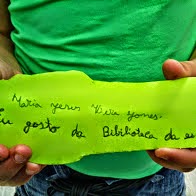 Maria Jesus Vieira Gomes.
Eu gosto da Bibilioteca da es